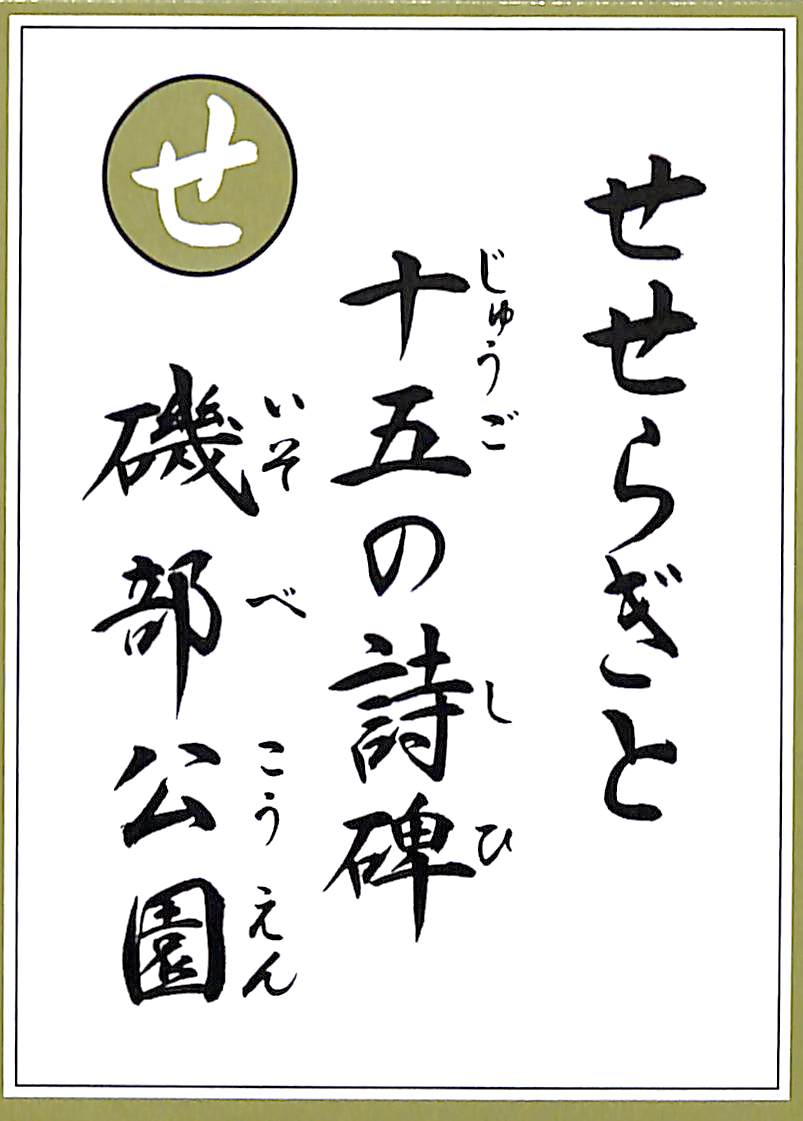 せ
せせらぎと
十五の詩碑
じゅうご
しひ
磯部公園
いそべ
こうえん